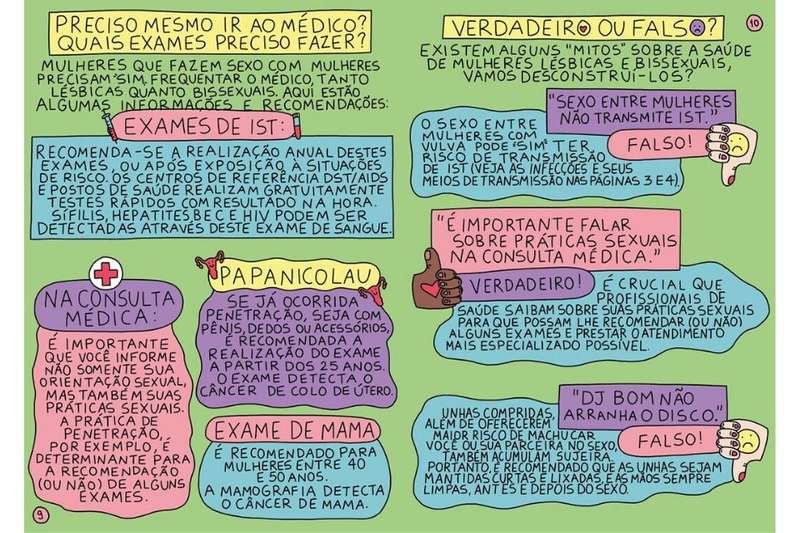 PRECISO MESMO IR AO MÉDICO?
QUAIS EXAMES PRECISO FAZER?
MULHERES QUE FAZEM SEXO COM MULHERES
PRECISAM "SIM", FREQUENTAR O MÉDICO, TANTO
LÉSBICAS QUANTO BISSEXUAIS. AQUI ESTÃO
ALGUMAS INFORMAÇÕES E RECOMENDAÇÕES:
EXAMES DE IST:
RECOMENDA-SE A REALIZAÇÃO ANUAL DESTES
EXAMES, OU APÓS EXPOSIÇÃO A SITUAÇÕES
DE RISCO. OS CENTROS DE REFERÊNCIA DST/AIDS
E POSTOS DE SAÚDE REALIZAM GRATUITAMENTE
TESTES RÁPIDOS COM RESULTADO NA HORA.
SÍFILIS, HEPATITES B E C E HIV PODEM SER
DETECTADAS ATRAVÉS DESTE EXAME DE SANGUE.
NA CONSULTA
MÉDICA:
É IMPORTANTE
QUE VOCÊ INFORME
NÃO SOMENTE SUA
ORIENTAÇÃO SEXUAL,
MAS TAMBÉM SUAS
PRÁTICAS SEXUAIS.
A PRÁTICA DE
PENETRAÇÃO,
POR EXEMPLO, É
DETERMINANTE PARA
A RECOMENDAÇÃO
(OU NÃO) DE ALGUNS
EXAMES.
PAPANICOLAU
SE JÁ OCORRIDA
PENETRAÇÃO, SEJA COM
PÊNIS, DEDOS OU ACESSÓRIOS,
É RECOMENDADA A
REALIZAÇÃO DO EXAME
A PARTIR DOS 25 ANOS.
O EXAME DETECTA O
CÂNCER DE COLO DE ÚTERO.
EXAME DE MAMA
É RECOMENDADO PARA
MULHERES ENTRE 40
E 50 ANOS.
A MAMOGRAFIA DETECTA
O CÂNCER DE MAMA.
9
VERDADEIRO OU FALSO?
10
EXISTEM ALGUNS "MITOS" SOBRE A SAÚDE
DE MULHERES LÉSBICAS E BISSEXUAIS,
VAMOS DESCONSTRUÍ-LOS?
"SEXO ENTRE MULHERES
NÃO TRANSMITE IST."
FALSO!
O SEXO ENTRE
MULHERES COM
VULVA PODE "SIM" TER
RISCO DE TRANSMISSÃO
DE IST (VEJA AS INFECÇÕES E SEUS
MEIOS DE TRANSMISSÃO NAS PÁGINAS 3 E 4).
"É IMPORTANTE FALAR
SOBRE PRÁTICAS SEXUAIS
NA CONSULTA MÉDICA."
VERDADEIRO!
É CRUCIAL QUE
PROFISSIONAIS DE
SAÚDE SAIBAM SOBRE SUAS PRÁTICAS SEXUAIS
PARA QUE POSSAM LHE RECOMENDAR (OU NÃO)
ALGUNS EXAMES E PRESTAR O ATENDIMENTO
MAIS ESPECIALIZADO POSSÍVEL.
"DJ BOM NÃO
ARRANHA O DISCO."
FALSO!
UNHAS COMPRIDAS,
ALÉM DE OFERECEREM
MAIOR RISCO DE MACHUCAR
VOCÊ OU SUA PARCEIRA NO SEXO,
TAMBÉM ACUMULAM SUJEIRA.
PORTANTO, É RECOMENDADO QUE AS UNHAS SEJAM
MANTIDAS CURTAS E LIXADAS, E AS MÃOS SEMPRE
LIMPAS, ANTES E DEPOIS DO SEXO.